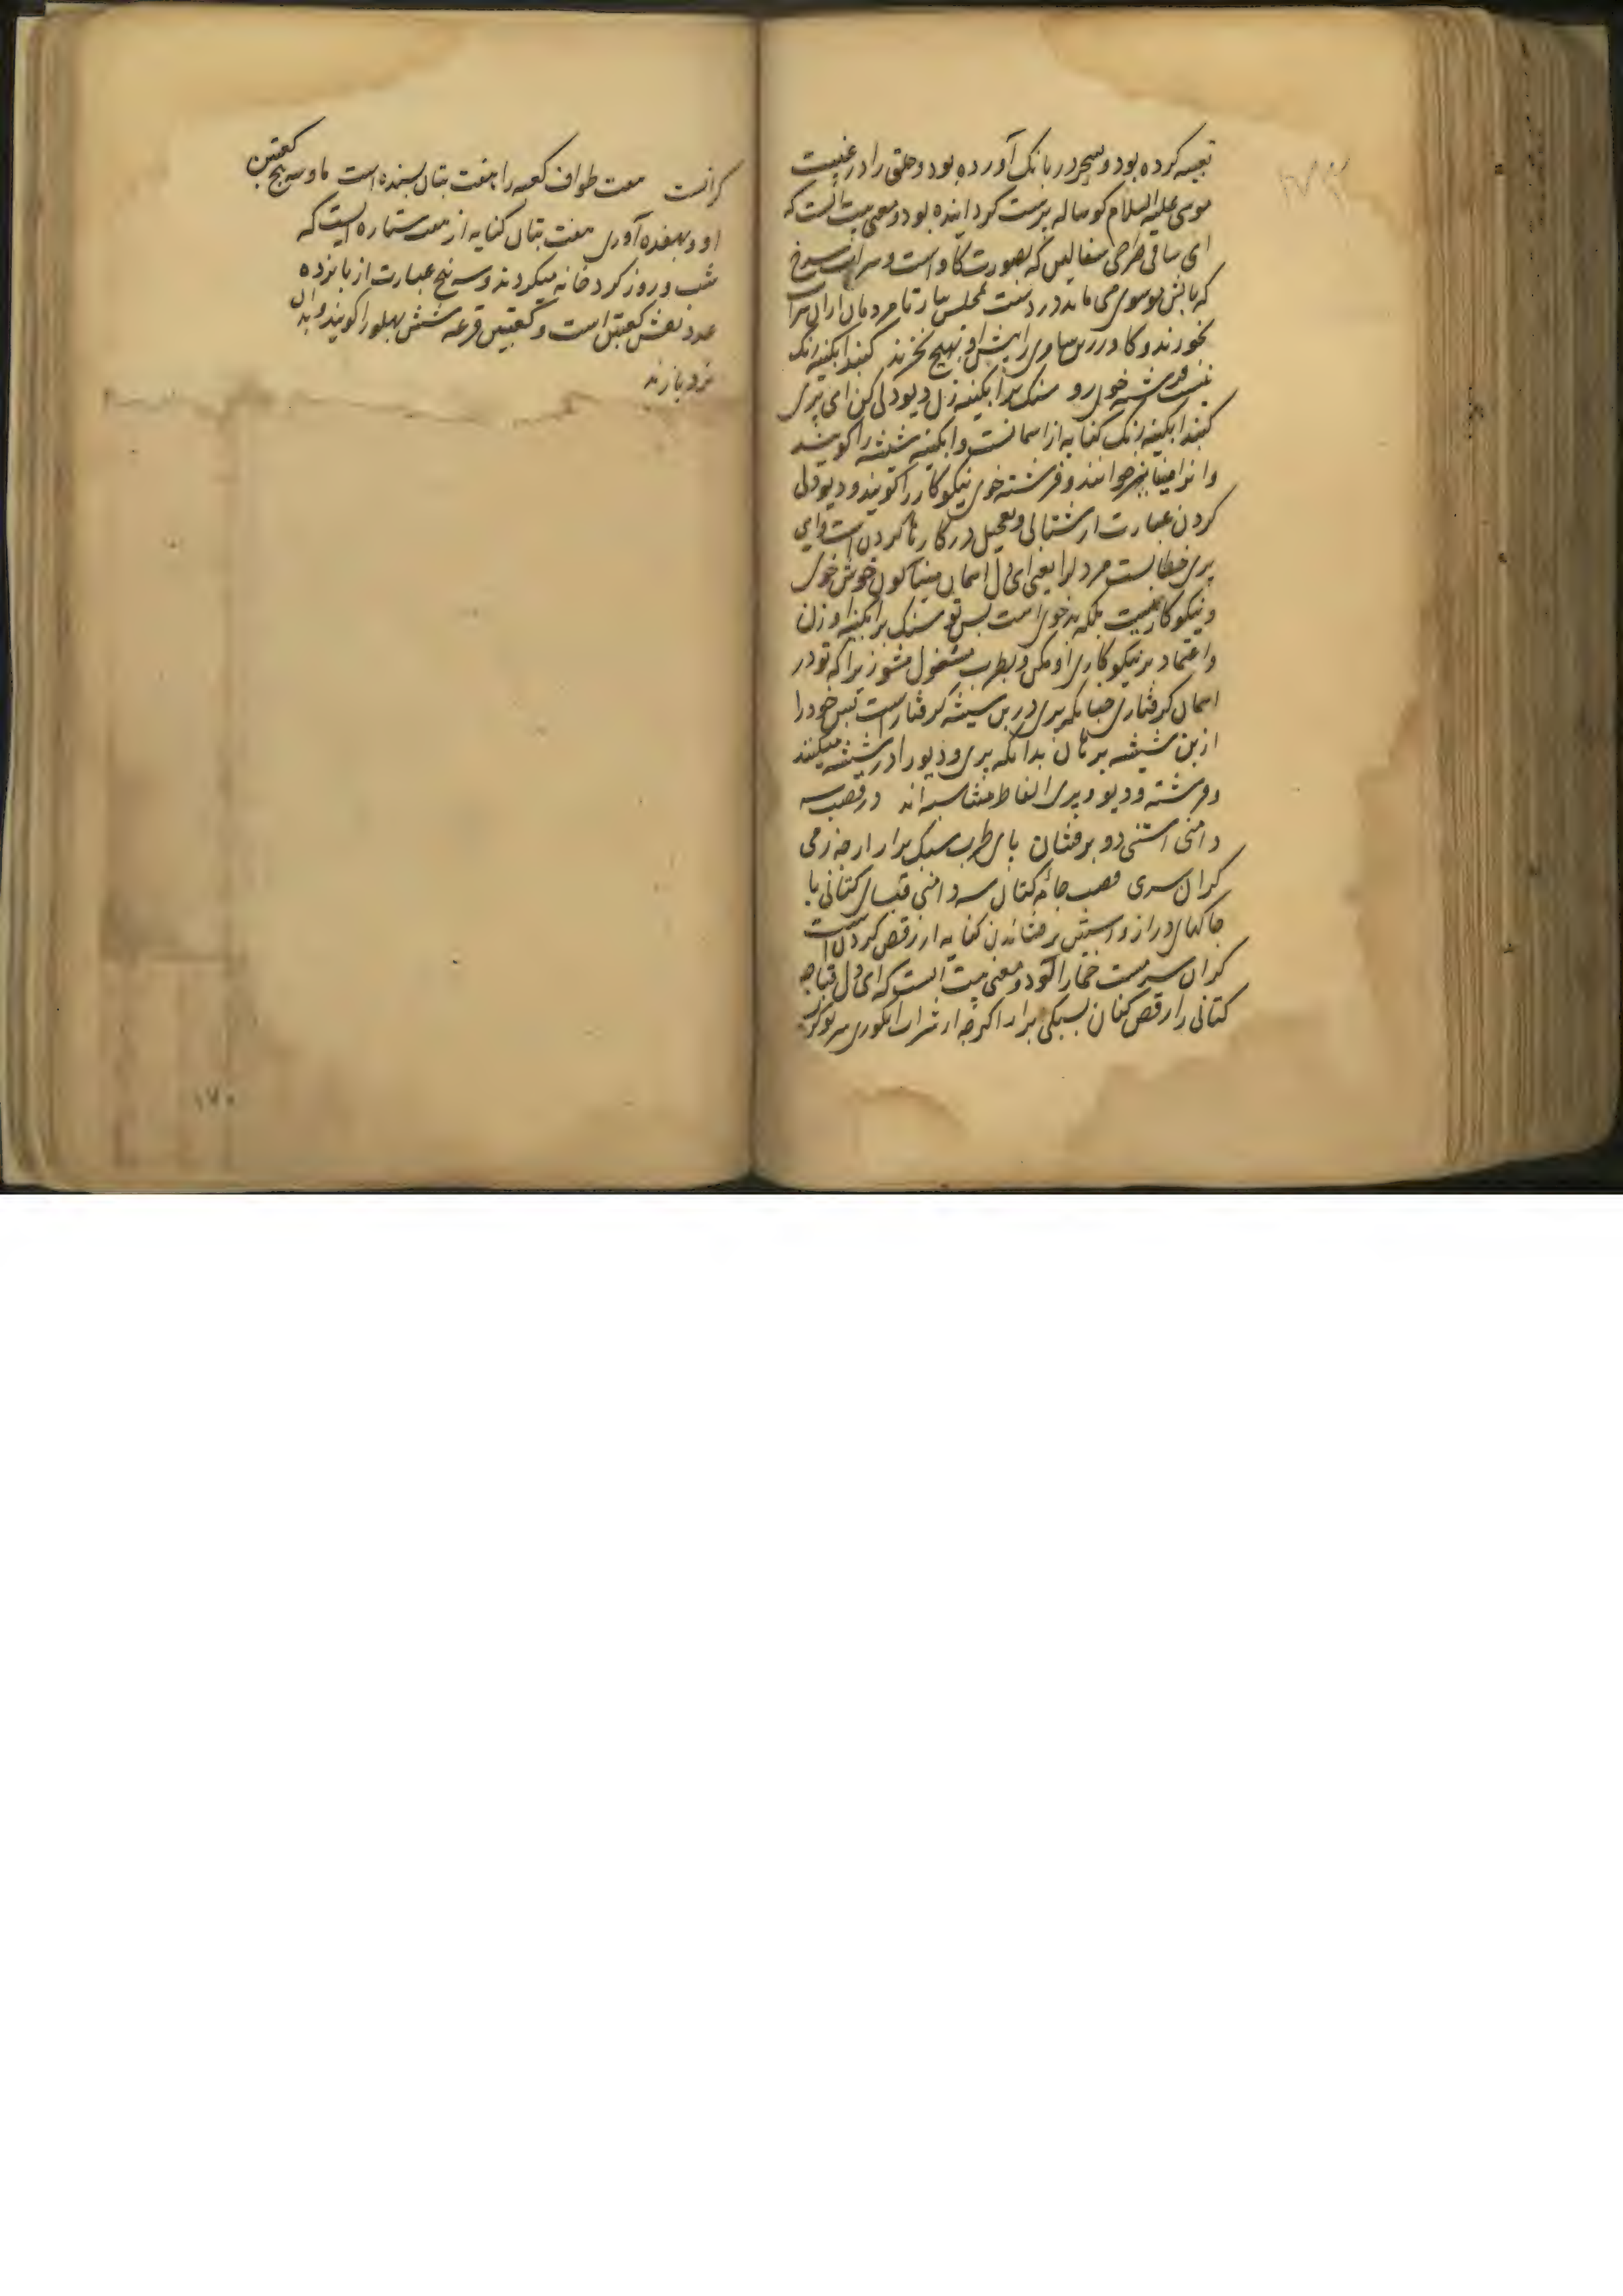 تعبیه کرده بود و بسحر در بانک آورده بود و خلق را در غیبت
موسی علیه السلام کوساله پرست کردانیده بود و معنی بیت آنست که
ای ساقی طرحی سفالین که بصورت کاو است و شراب سرخ
که باتش موسوی می ماند در دست مجلس بیار تا مردمان ازان شراب
بخورند و کاو زرین سامری را پیش او بهیچ نخرند کنبد ابکینه رنک
نیست فرشته خوی رو سنک بر ابکینه زن دیودلی کن ای پری
کنبد ابکینه رنک کنایه از اسمانست و ابکینه شیشه را کویند
و انرا مینا نیز خوانند و فرشته خوی نیکوکار را کویند و دیودلی
کردن عبارت از شتابی و تعجیل در کارها کردن است و ای
پری خطابست مر دلرا یعنی ای دل اسمان مینا کون خوش خوی
و نیکوکار نیست بلکه بدخوی است پس تو سنک بر ابکینه او زن
و اعتماد بر نیکوکاری او مکن و بطرب مشغول مشو زیرا که تو در
اسمان کرفتاری چنانکه پری درین شیشه کرفتار است پس خود را
ازین شیشه برهان بدانکه پری و دیو را در شیشه میکنند
و فرشته و دیو و پری الفاظ متناسبه اند در قصب سه
دامنی استنی دو برفشان پای طرب سبک برار ار چه زمی
کران سری قصب جامه کتان سه دامنی قبای کتانی با
چاکهای دراز و استین برفشاندن کنایه از رقص کردن است
کران سر مست خمار الود و معنی بیت انست که ای دل قباچه
کتانی را رقص کنان بسبکی برار اکرچه از شراب انکوری سر تو
کرانست هفت طواف کعبه را هفت بتان بسنده است ما و سه پنج کعبتین
او و بهفده آوری هفت بتان کنایه از هفت ستاره ایست که
شب و روز کرد خانه میکردند و سه پنج عبارت از پانزده
عدد نقش کعبتین است و کعبتین قرعه شش پهلو را کویند و بدان
نرد بازند
۱۷۰